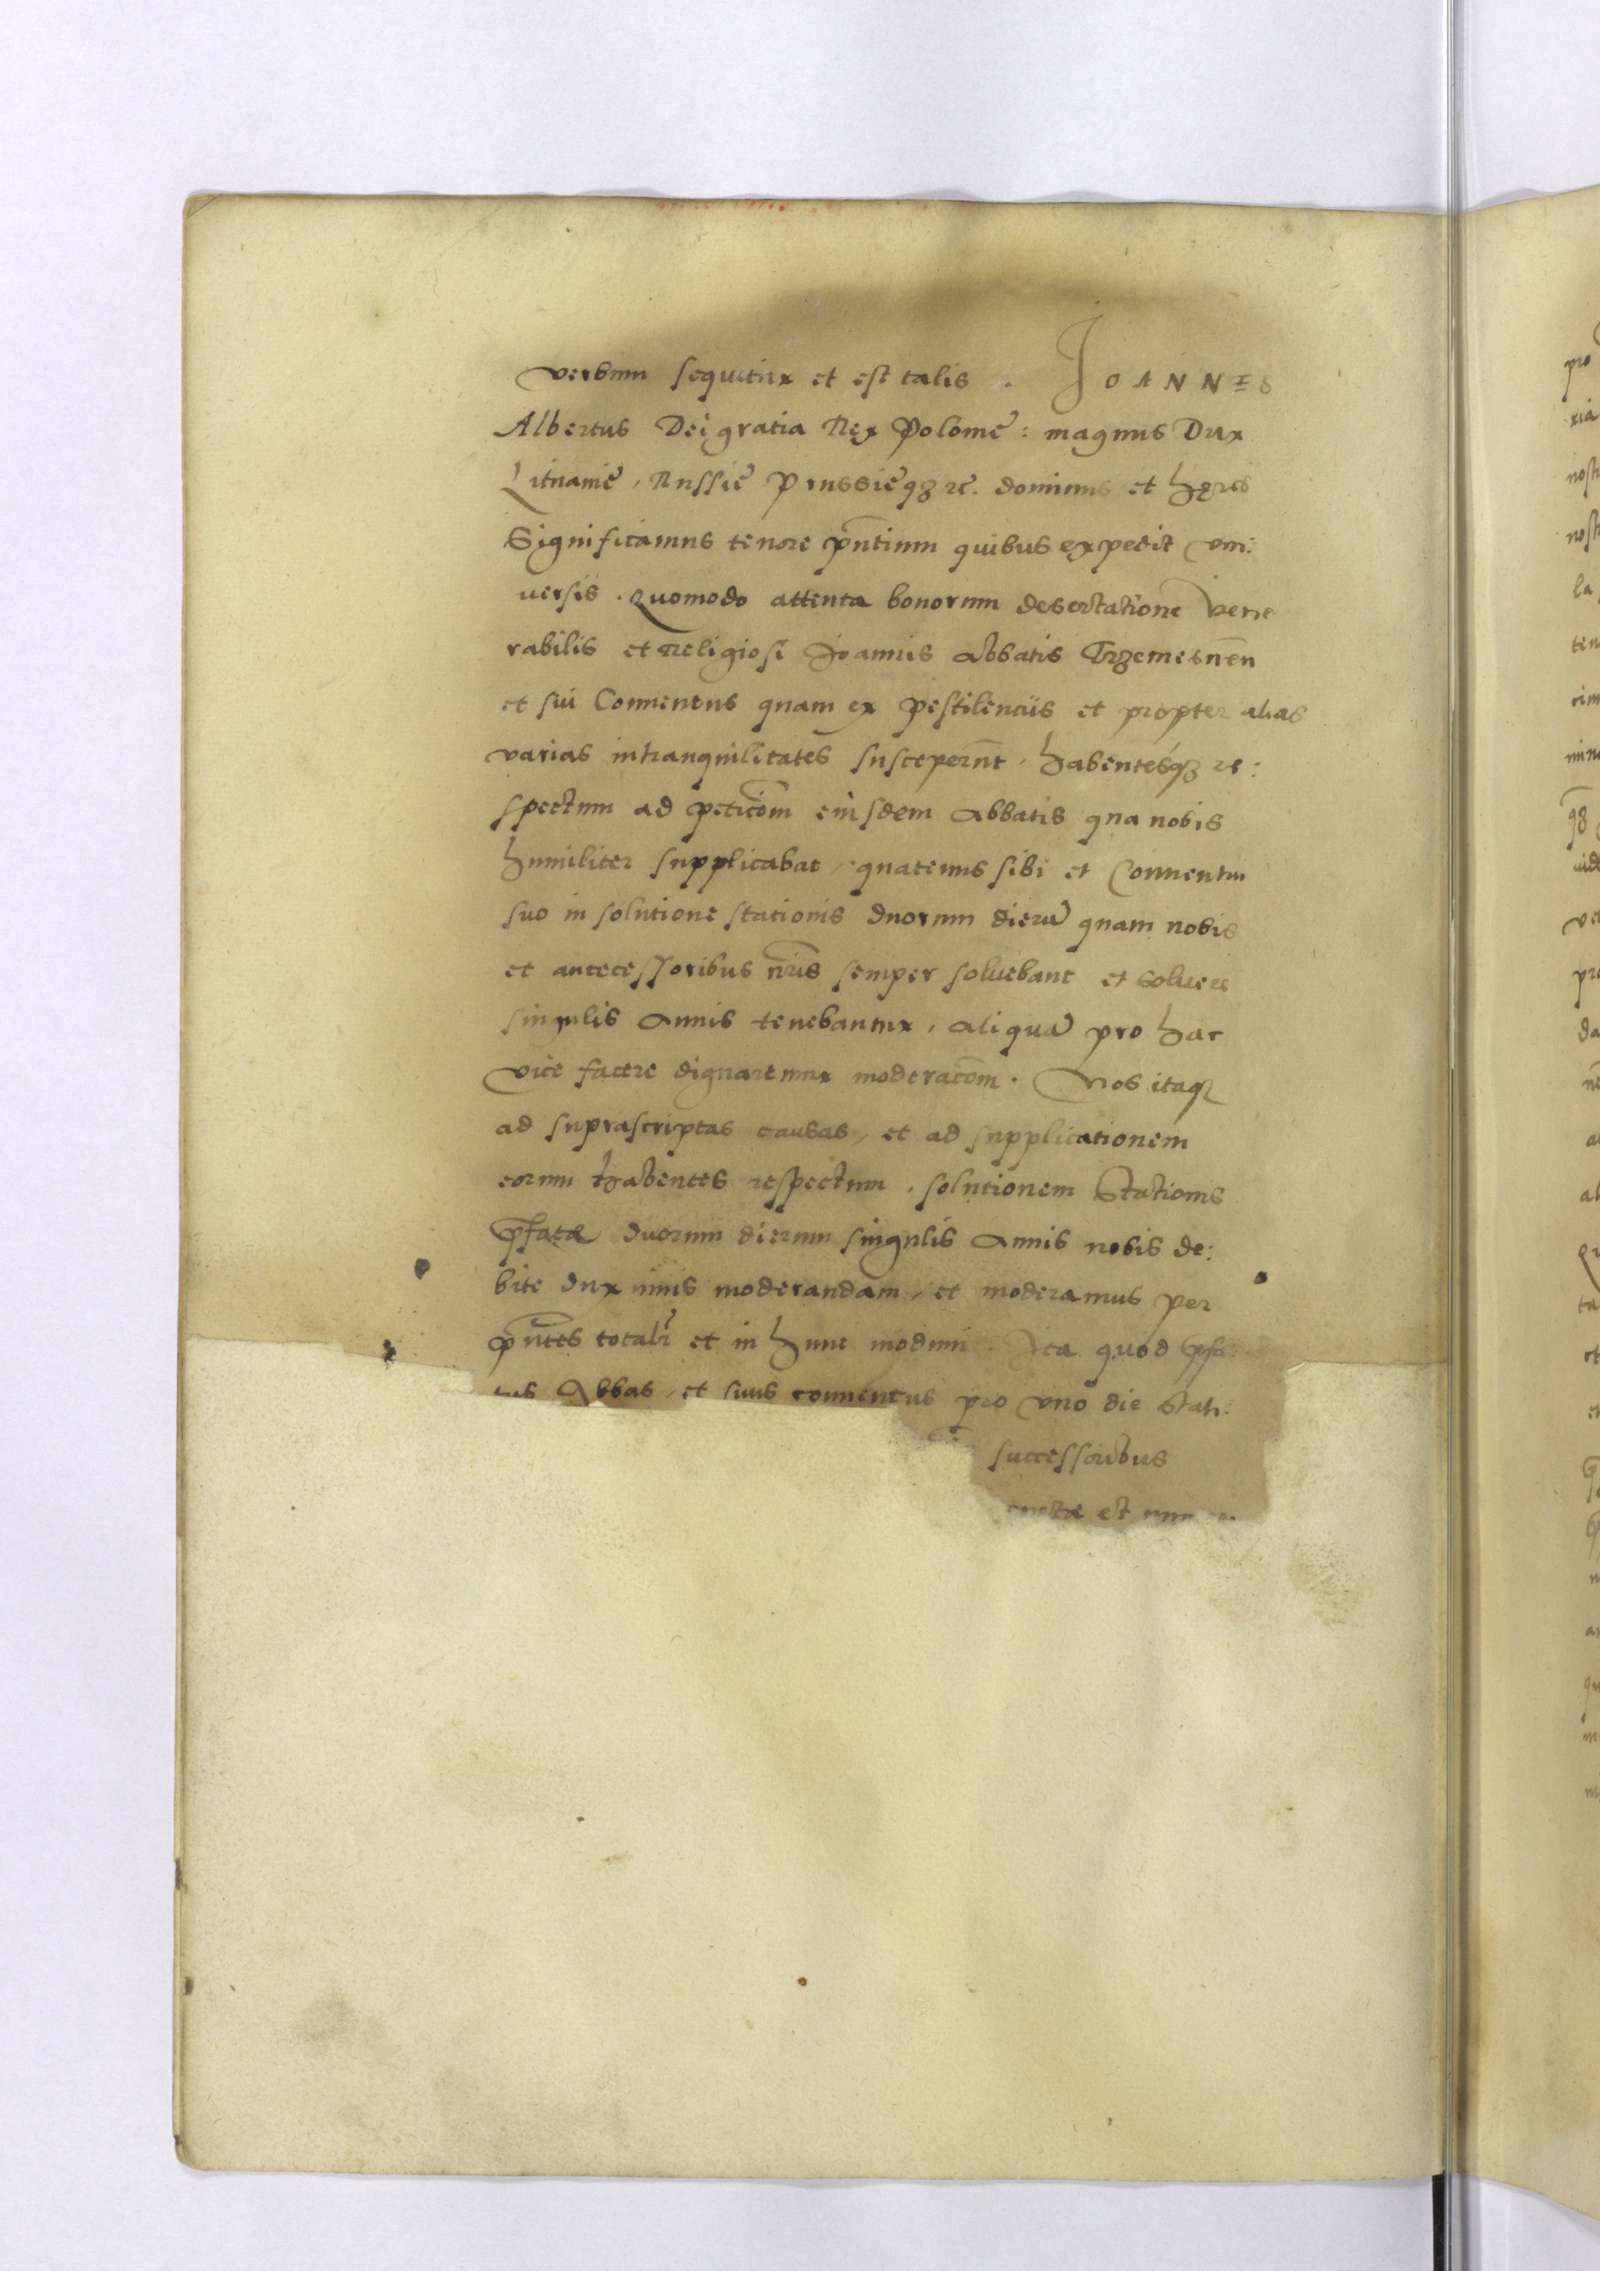 verbum sequitur et est talis . IOANNES
Albertus Dei gratia Rex Polonie : magnus Dux
Lituanie , Russie Prussieqꝫ ꝛc̃. dominus et hęres
Significamus tenore pñtium quibus expedit vni:
uersis . Quomodo attenta bonorum desertatione Vene
rabilis et Religiosi Joannis abbatis Trzemesnẽn
et sui Conuentus quam ex pestilenciis et propter alias
varias intranquilitates susceperũnt , habentesqꝫ re:
spectum ad peticõm eiusdem abbatis qua nobis
humiliter supplicabat , quatenus sibi et Conuentui
suo in solutione stationis duorum dierũ quam nobis
et antecessoribus nr̃is semper soluebant et soluere
singulis Annis tenebantur , aliquã pro hac
vice facere dignaremur moderacõm . Nos itaqꝫ
ad suprascriptas causas , et ad supplicationem
eorum habentes respectum , solutionem Stationis
p̃fatæ duorum dierum singulis Annis nobis de:
bite duximus moderandam , et moderamus per
pñtes totalr̃ et in hunc modum . Ita quod p̃fa:
tus Abbas , et suus conuentus pro vno die Stati:
successoribus
et